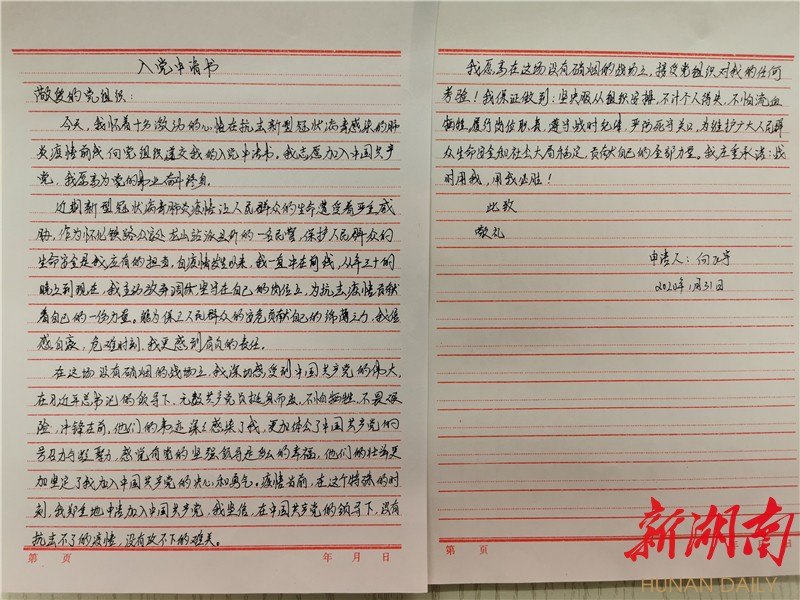 入党申请书
敬爱的党组织：
今天，我怀着十分激动的心情在抗击新型冠状病毒感染的肺
炎疫情前线向党组织递交我的入党申请书。我志愿加入中国共产
党，我愿意为党的事业奋斗终身。
近期新型冠状病毒肺炎疫情让人民群众的生命遭受着严重威
胁，作为怀化铁路公安处龙山站派出所的一名民警，保护人民群众的
生命安全是我应有的担当，自疫情发生以来，我一直冲在前线，从年三十的
晚上到现在，我主动放弃调休坚守在自己的岗位上，为抗击疫情贡献
着自己的一份力量。能为保卫人民群众的安危贡献自己的绵薄之力，我倍
感自豪，危难时刻，我更感到肩负的责任。
在这场没有硝烟的战场上，我深切感受到中国共产党的伟大，
在习近平总书记的领导下，无数共产党员挺身而出，不怕牺牲，不畏艰
险，冲锋在前，他们的事迹深深感染了我，更加体会了中国共产党的
号召力与凝聚力，感觉有党的坚强领导是多么的幸福，他们的壮举更
加坚定了我加入中国共产党的决心和勇气。疫情当前，在这个特殊的时
刻，我郑重地申请加入中国共产党，我坚信，在中国共产党的领导下，没有
抗击不了的疫情，没有攻不下的难关。
第 页 年 月 日
我愿意在这场没有硝烟的战场上，接受党组织对我的任何
考验！我保证做到：坚决服从组织安排，不计个人得失，不怕流血
牺牲，履行岗位职责，遵守战时纪律，严防死守关口，为维护广大人民群
众生命安全和社会大局稳定，贡献自己的全部力量。我庄重承诺：战
时用我，用我必胜！
此致
敬礼
申请人：向
2020年1月31日
第 页
日
新湖南
HUNAN DAILY